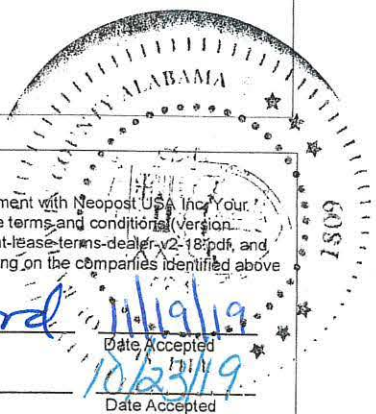 COUNTY ALABAMA
1809
ment with Neopost USA Inc. Your
e terms and conditions (version
nt-lease-terms-dealer-v2-18.pdf, and
ng on the companies identified above
rd 11/19/19
Date Accepted
10/23/19
Date Accepted